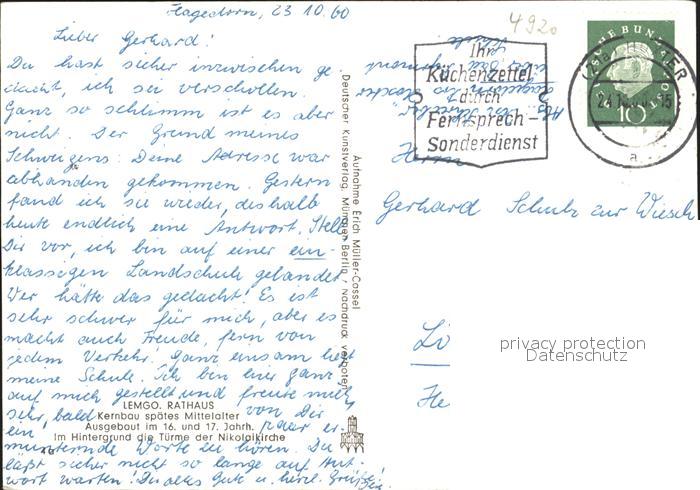 Hagedorn, 23.10.60
Lieber Gerhard!
Du hast sicher inzwischen ge-
dacht, ich sei verschollen.
Ganz so schlimm ist es aber
nicht. Der Grund meines
Schweigens: Deine Adresse war
abhanden gekommen. Gestern
fand ich sie wieder, deshalb
heute endlich eine Antwort. Stell
Dir vor, ich bin auf einer ein-
klassigen Landschule gelandet
Wer hätte das gedacht! Es ist
sehr schwer für mich, aber es
macht auch Freude, fern von
jedem Verkehr. Ganz einsam liegt
meine Schule. Ich bin hier ganz
auf mich gestellt und freute mich
sehr, bald von Dir
ein paar er-
munternde Worte zu hören. Du
läßt sicher nicht so lange auf Ant-
wort warten! Dir alles Gute u. herzl. Grüße!
LEMGO. RATHAUS
Kernbau spätes Mittelalter
Ausgebaut im 16. und 17. Jahrh.
Im Hintergrund die Türme der Nikolaikirche
Aufnahme Erich Müller-Cassel
Deutscher Kunstverlag, München Berlin / Nachdruck verboten
4920
Ihr
Küchenzettel
durch
Fernsprech-
Sonderdienst
DEUTSCHE BUNDESPOST
10
24.10.60-15
a
Herrn
Gerhard Schulz zur Wiesch
Li
He
privacy protection
Datenschutz